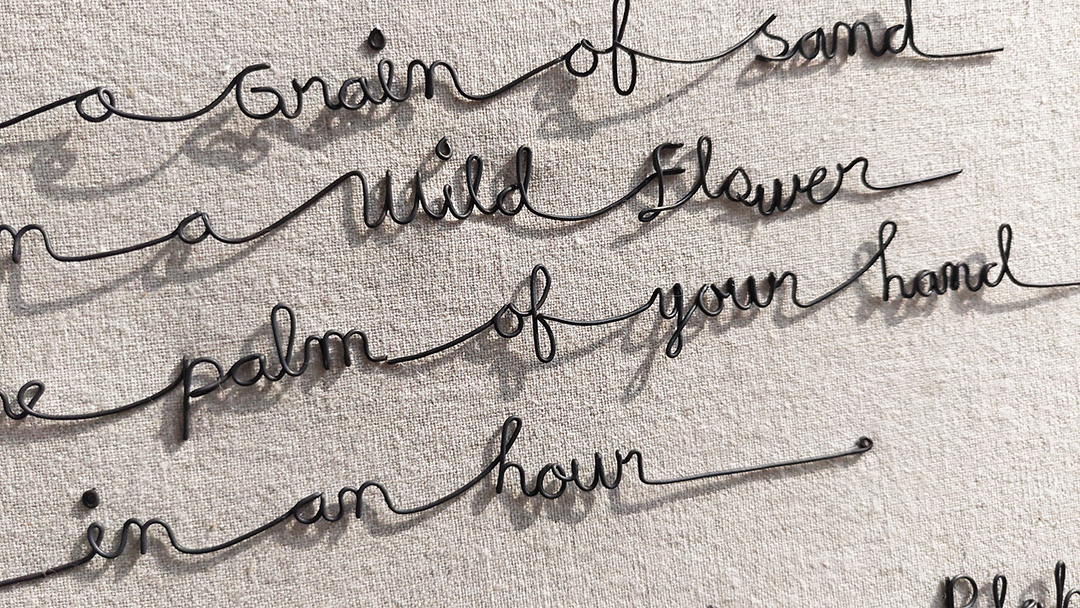 a Grain of sand
n a Wild Flower
e palm of your hand
in an hour